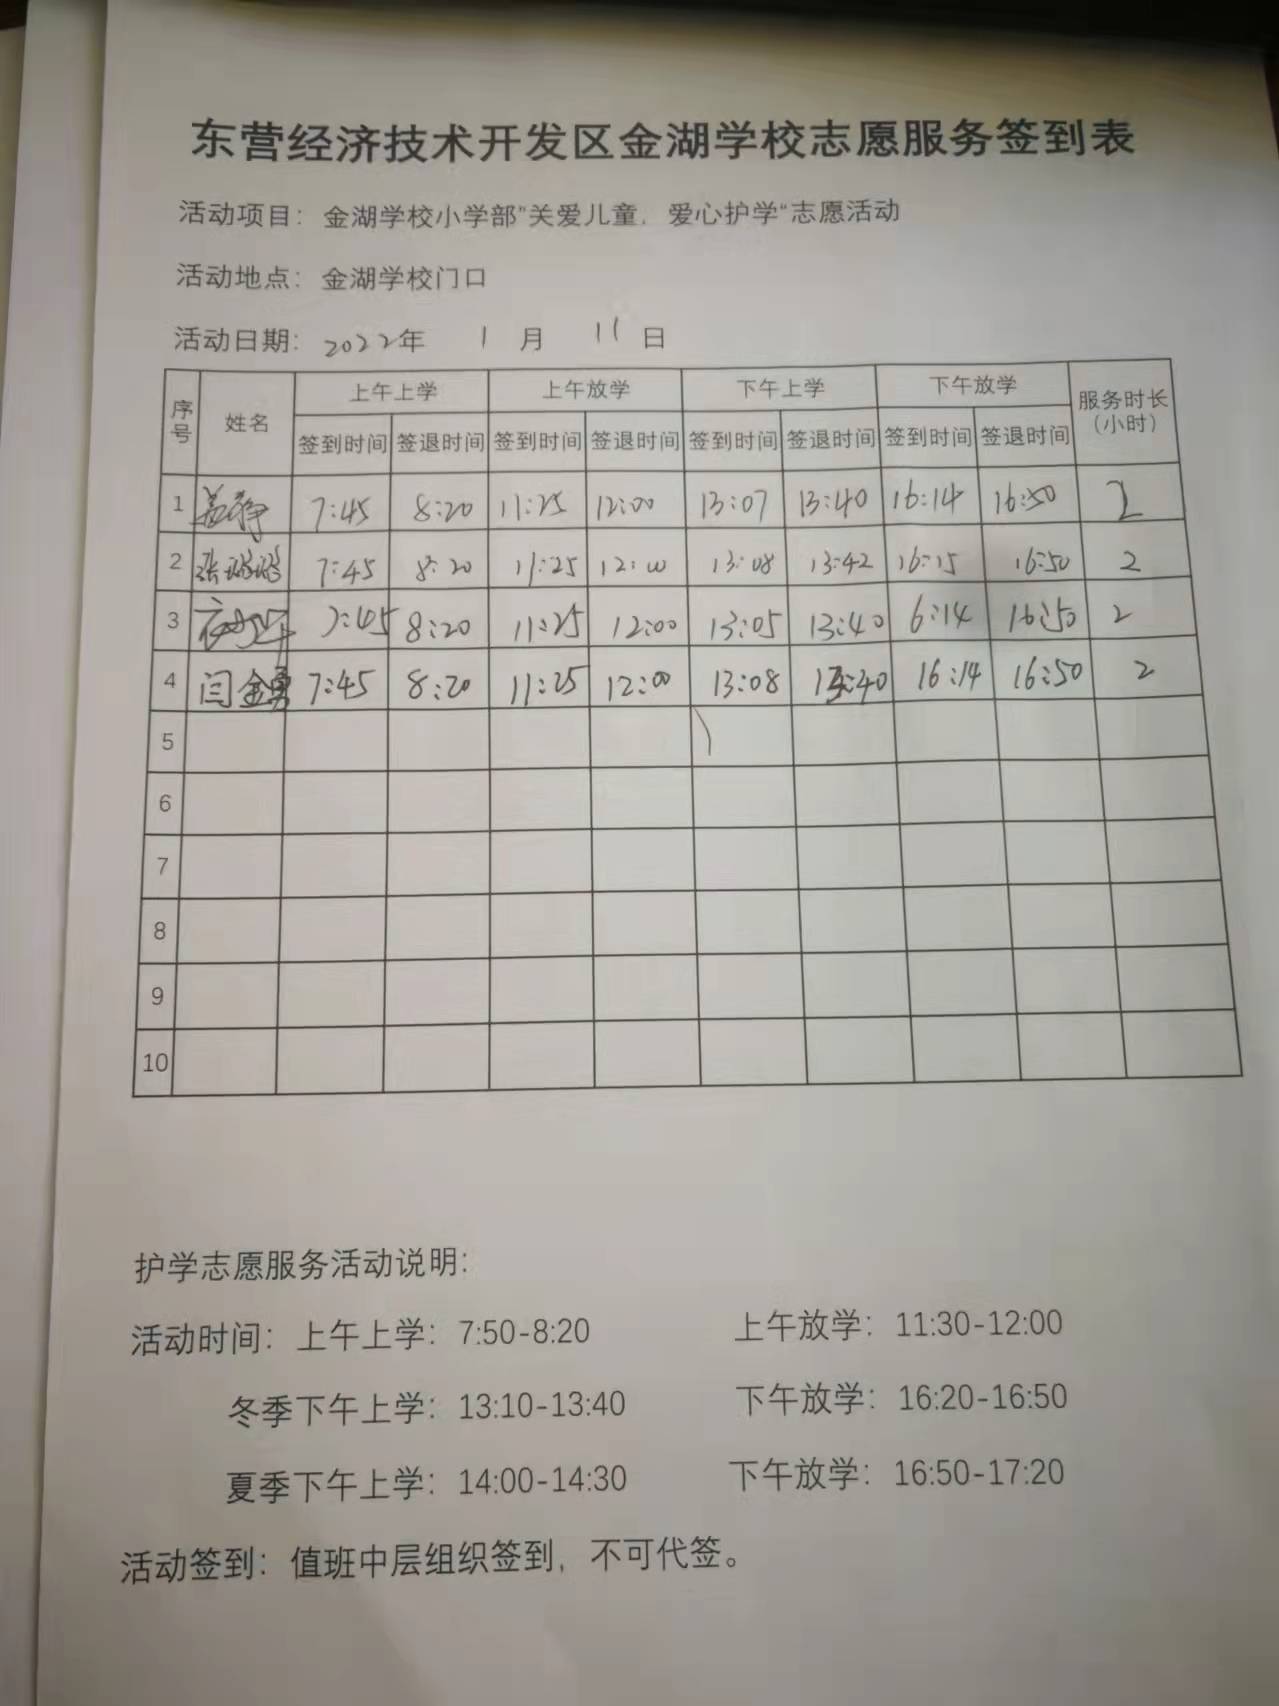 东营经济技术开发区金湖学校志愿服务签到表
活动项目：金湖学校小学部"关爱儿童，爱心护学"志愿活动
活动地点：金湖学校门口
活动日期：2022年 1 月 11 日
序号 姓名 上午上学 上午放学 下午上学 下午放学 服务时长（小时）
签到时间 签退时间 签到时间 签退时间 签到时间 签退时间 签到时间 签退时间
1 7:45 8:20 11:25 12:00 13:07 13:40 16:14 16:50 2
2 张璐璐 7:45 8:20 11:25 12:00 13:08 13:42 16:15 16:50 2
3 7:45 8:20 11:25 12:00 13:05 13:40 6:14 16:50 2
4 闫金勇 7:45 8:20 11:25 12:00 13:08 13:40 16:14 16:50 2
5
6
7
8
9
10
护学志愿服务活动说明：
活动时间：上午上学：7:50-8:20 上午放学：11:30-12:00
冬季下午上学：13:10-13:40 下午放学：16:20-16:50
夏季下午上学：14:00-14:30 下午放学：16:50-17:20
活动签到：值班中层组织签到，不可代签。